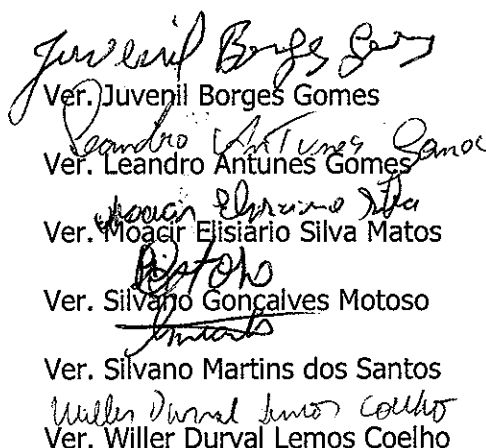 Juvenil Borges Gomes
Ver. Juvenil Borges Gomes
Leandro Antunes
Ver. Leandro Antunes Gomes
Moacir Elisiario Silva
Ver. Moacir Elisiário Silva Matos
Ver. Silvano Gonçalves Motoso
Ver. Silvano Martins dos Santos
Willer Durval Lemos Coelho
Ver. Willer Durval Lemos Coelho